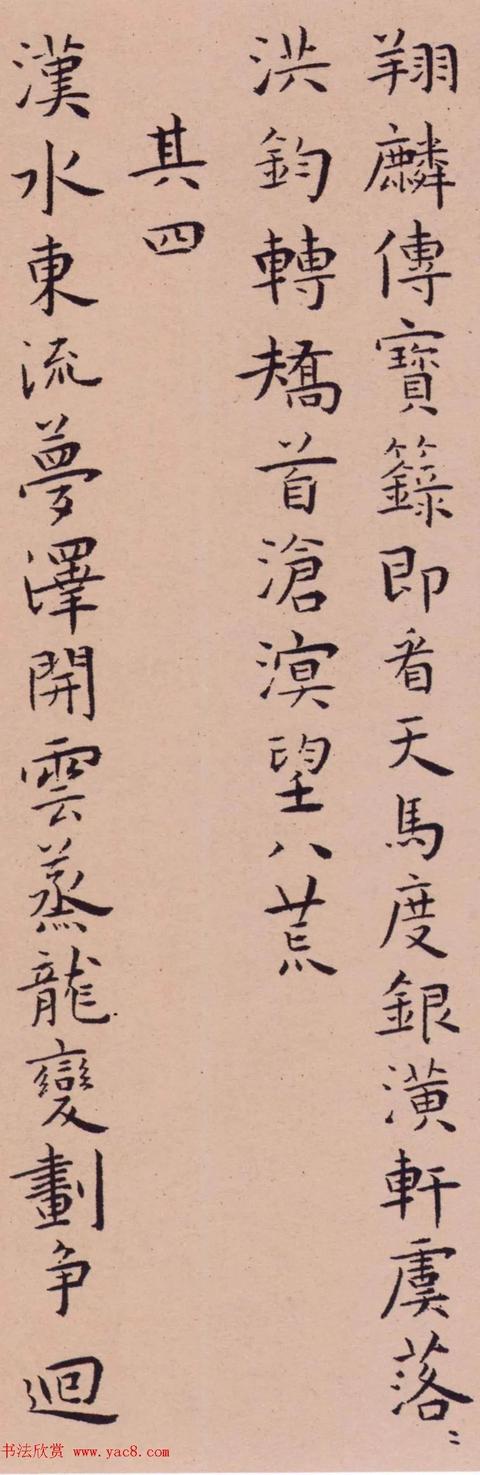 翔麟傳寶籙即看天馬度銀潢軒虞落〻
洪鈞轉矯首滄溟望八荒
其四
漢水東流夢澤開雲蒸龍變劃爭迴
书法欣赏 www.yac8.com